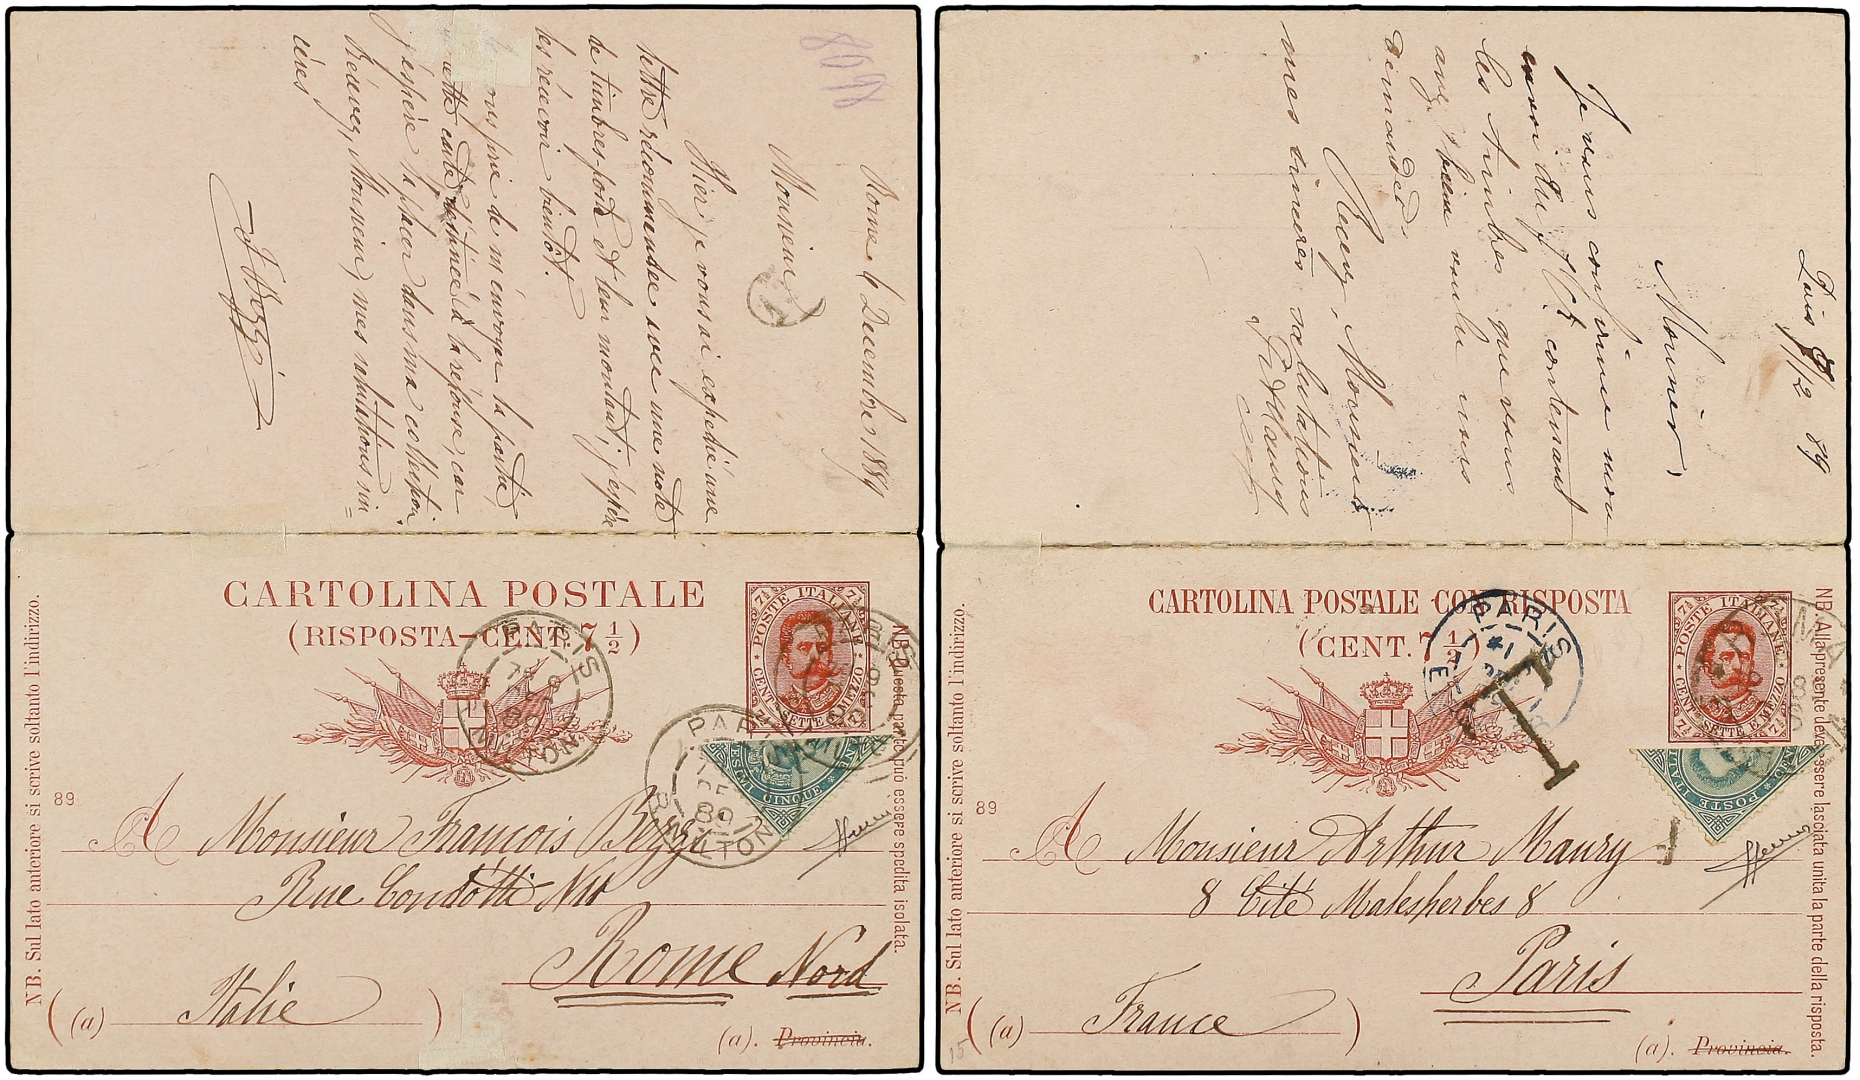 8098
Rome 4 Decembre 1889
Monsieur
Hier je vous ai expédié une
lettre recommandée avec une note
de timbres-poste et leur montant, j'espère
les recevoir bientôt.
vous prie de m'envoyer la partie
cette carte destinée à la réponse, car
j'espère la placer dans ma collection
Recevez, Monsieur, mes salutations sin=
cères
CARTOLINA POSTALE
(RISPOSTA-CENT. 7 1/2)
POSTE ITALIANE
CENT. SETTE E MEZZO
7½
PARIS
DEC
89
CINQUE
89
A Monsieur François Bezzi
Rue Condotti No
Rome Nord
(a) Italie
(a). Provincia.
NB. Sul lato anteriore si scrive soltanto l'indirizzo.
NB. Questa parte può essere spedita isolata.
Paris 8/12 89
Monsieur,
Je vous confirme mon
envoi du contenant
les timbres que vous
avez bien voulu nous
demander.
Recevez, Monsieur
mes sincères salutations
CARTOLINA POSTALE CON RISPOSTA
(CENT. 7 1/2)
POSTE ITALIANE
CENT. SETTE E MEZZO
7½
PARIS
T
POSTE ITALIANE
89
A Monsieur Arthur Maury
8 Cité Malesherbes 8
Paris
(a) France
(a). Provincia.
15
NB. Sul lato anteriore si scrive soltanto l'indirizzo.
NB. Alla presente deve essere lasciata unita la parte della risposta.